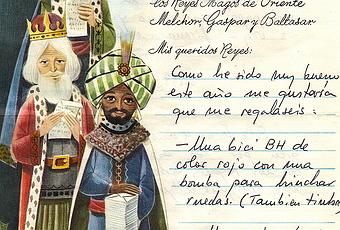 los Reyes Magos de Oriente
Melchor, Gaspar y Baltasar
Mis queridos Reyes:
Como he sido muy bueno
este año me gustaría
que me regaláseis:
- Una bici BH de
color rojo con una
bomba para hinchar
ruedas. (También timbre)